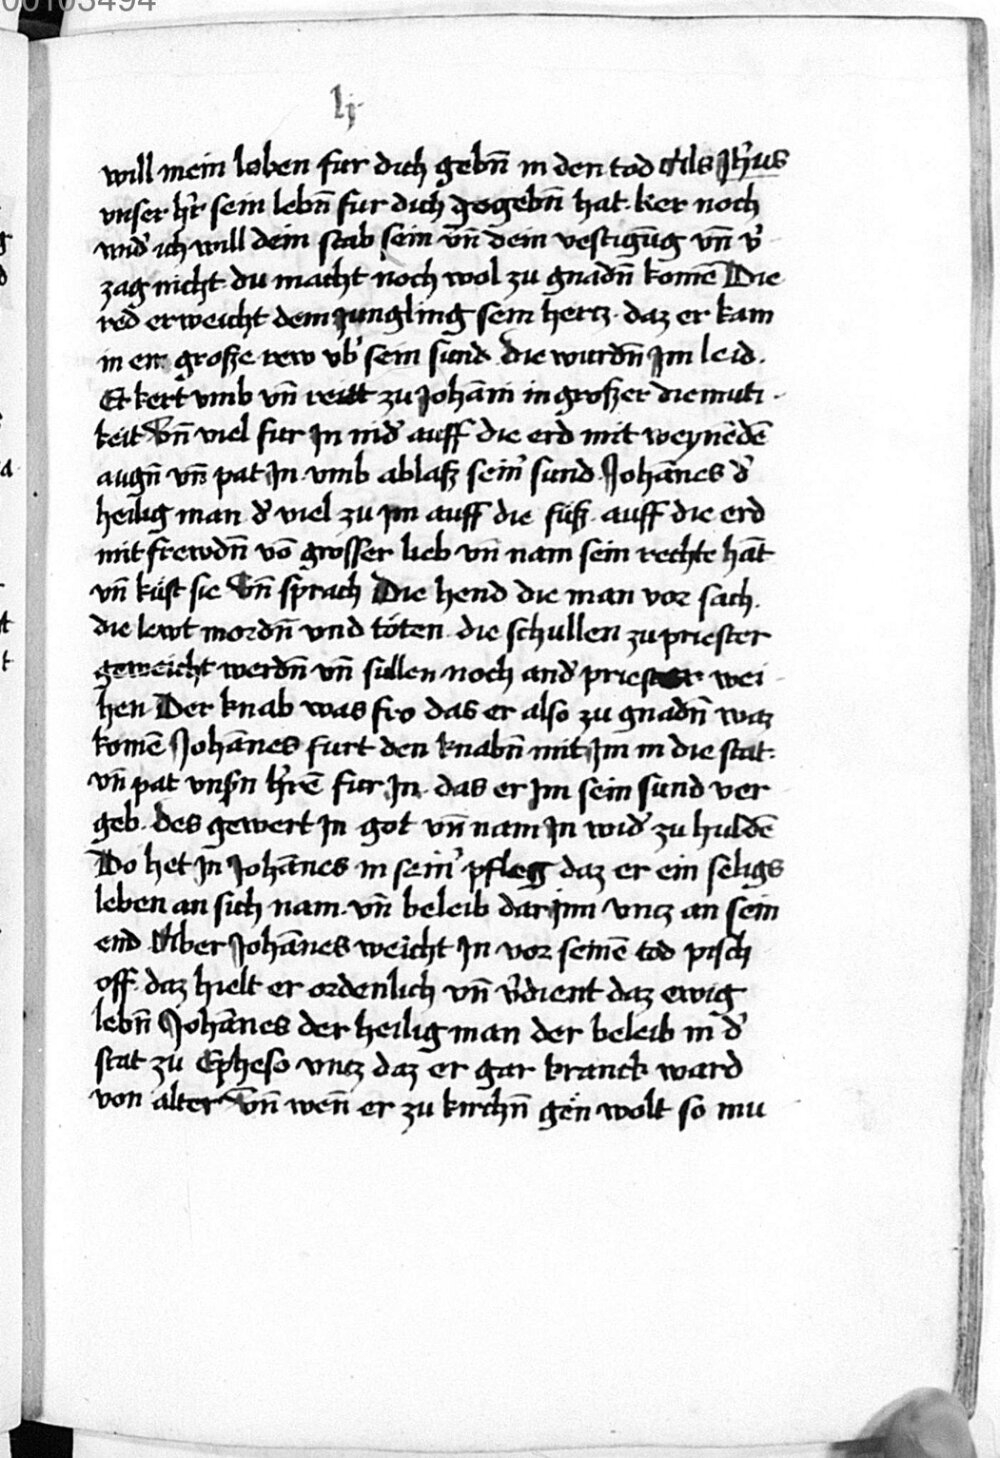 00103494
lj
will mein leben fur dich gebn̄ in den tod Als Jh̄us
vnser hr̄ sein lebn̄ fur dich gegebn̄ hat. ker noch
wid̉ ich will dein stab sein vn̄ dein vestigūg vn̄ v̉
zag nicht du macht noch wol zu gnadn̄ komē Die
red erweicht dem Jungling sein hertz. daz er kam
in ein große rew vb̉ sein sund die wurdn̄ Jm leid.
Er kert vmb vn̄ reitt zu Johāni in großer diemuti
keit Vn̄ viel fur Jn nid̉ auff die erd mit weynēdē
augn̄ vn̄ pat Jn vmb ablaß sein̉ sund Johānes d̉
heilig man d̉ viel zu Jm auff die fuß auff die erd
mit frewdn̄ vō grosser lieb vn̄ nam sein rechte hāt
vn̄ kust sie Vn̄ sprach Die hend die man vor sach.
die lewt mordn̄ vnd toten die schullen zu priester
geweicht werdn̄ vn̄ sullen noch and̉ priester wei
hen Der knab was fro das er also zu gnadn̄ waz
komē Johānes furt den knabn̄ mit Jm in die stat.
vn̄ pat vnsn̄ hr̄rē fur Jn das er Jm sein sund ver
geb. des gewert Jn got vn̄ nam Jn wid̉ zu huldē
Do het Jn Johānes in sein̉ pfleg daz er ein seligs
leben an sich nam. vn̄ beleib dar Jnn vntz an sein
end Aber Johānes weicht Jn vor seinē tod pisch
off. daz hielt er ordenlich vn̄ v̉dient daz ewig
lebn̄ Johānes der heilig man der beleib in d̉
stat zu Epheso vntz daz er gar kranck ward
von alter Vn̄ wen̄ er zu kirchn̄ gen wolt so mu